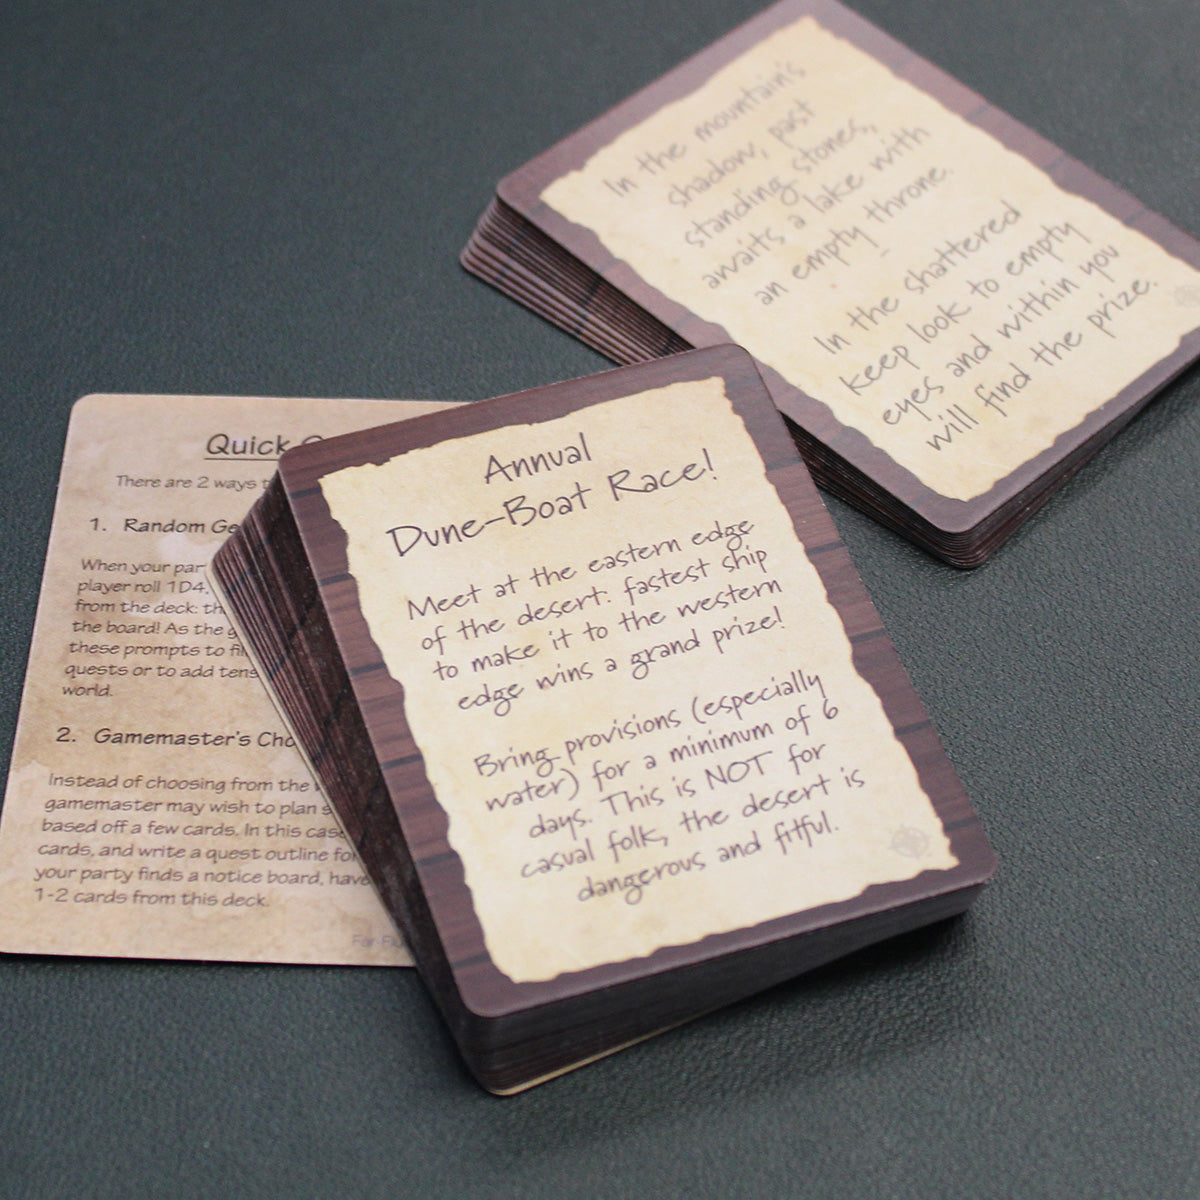 In the mountain's
shadow, past
standing stones,
awaits a lake with
an empty throne.
In the shattered
keep look to empty
eyes and within you
will find the prize.
Annual
Dune-Boat Race!
Meet at the eastern edge
of the desert: fastest ship
to make it to the western
edge wins a grand prize!
Bring provisions (especially
water) for a minimum of 6
days. This is NOT for
casual folk, the desert is
dangerous and fitful.
Quick
There are 2 ways
1. Random
When your
player roll 1D4,
from the deck:
the board! As the
these prompts to
quests or to add
world.
2. Gamemaster's
Instead of choosing from the
gamemaster may wish to plan
based off a few cards. In this
cards, and write a quest outline
your party finds a notice board, have
1-2 cards from this deck.
For